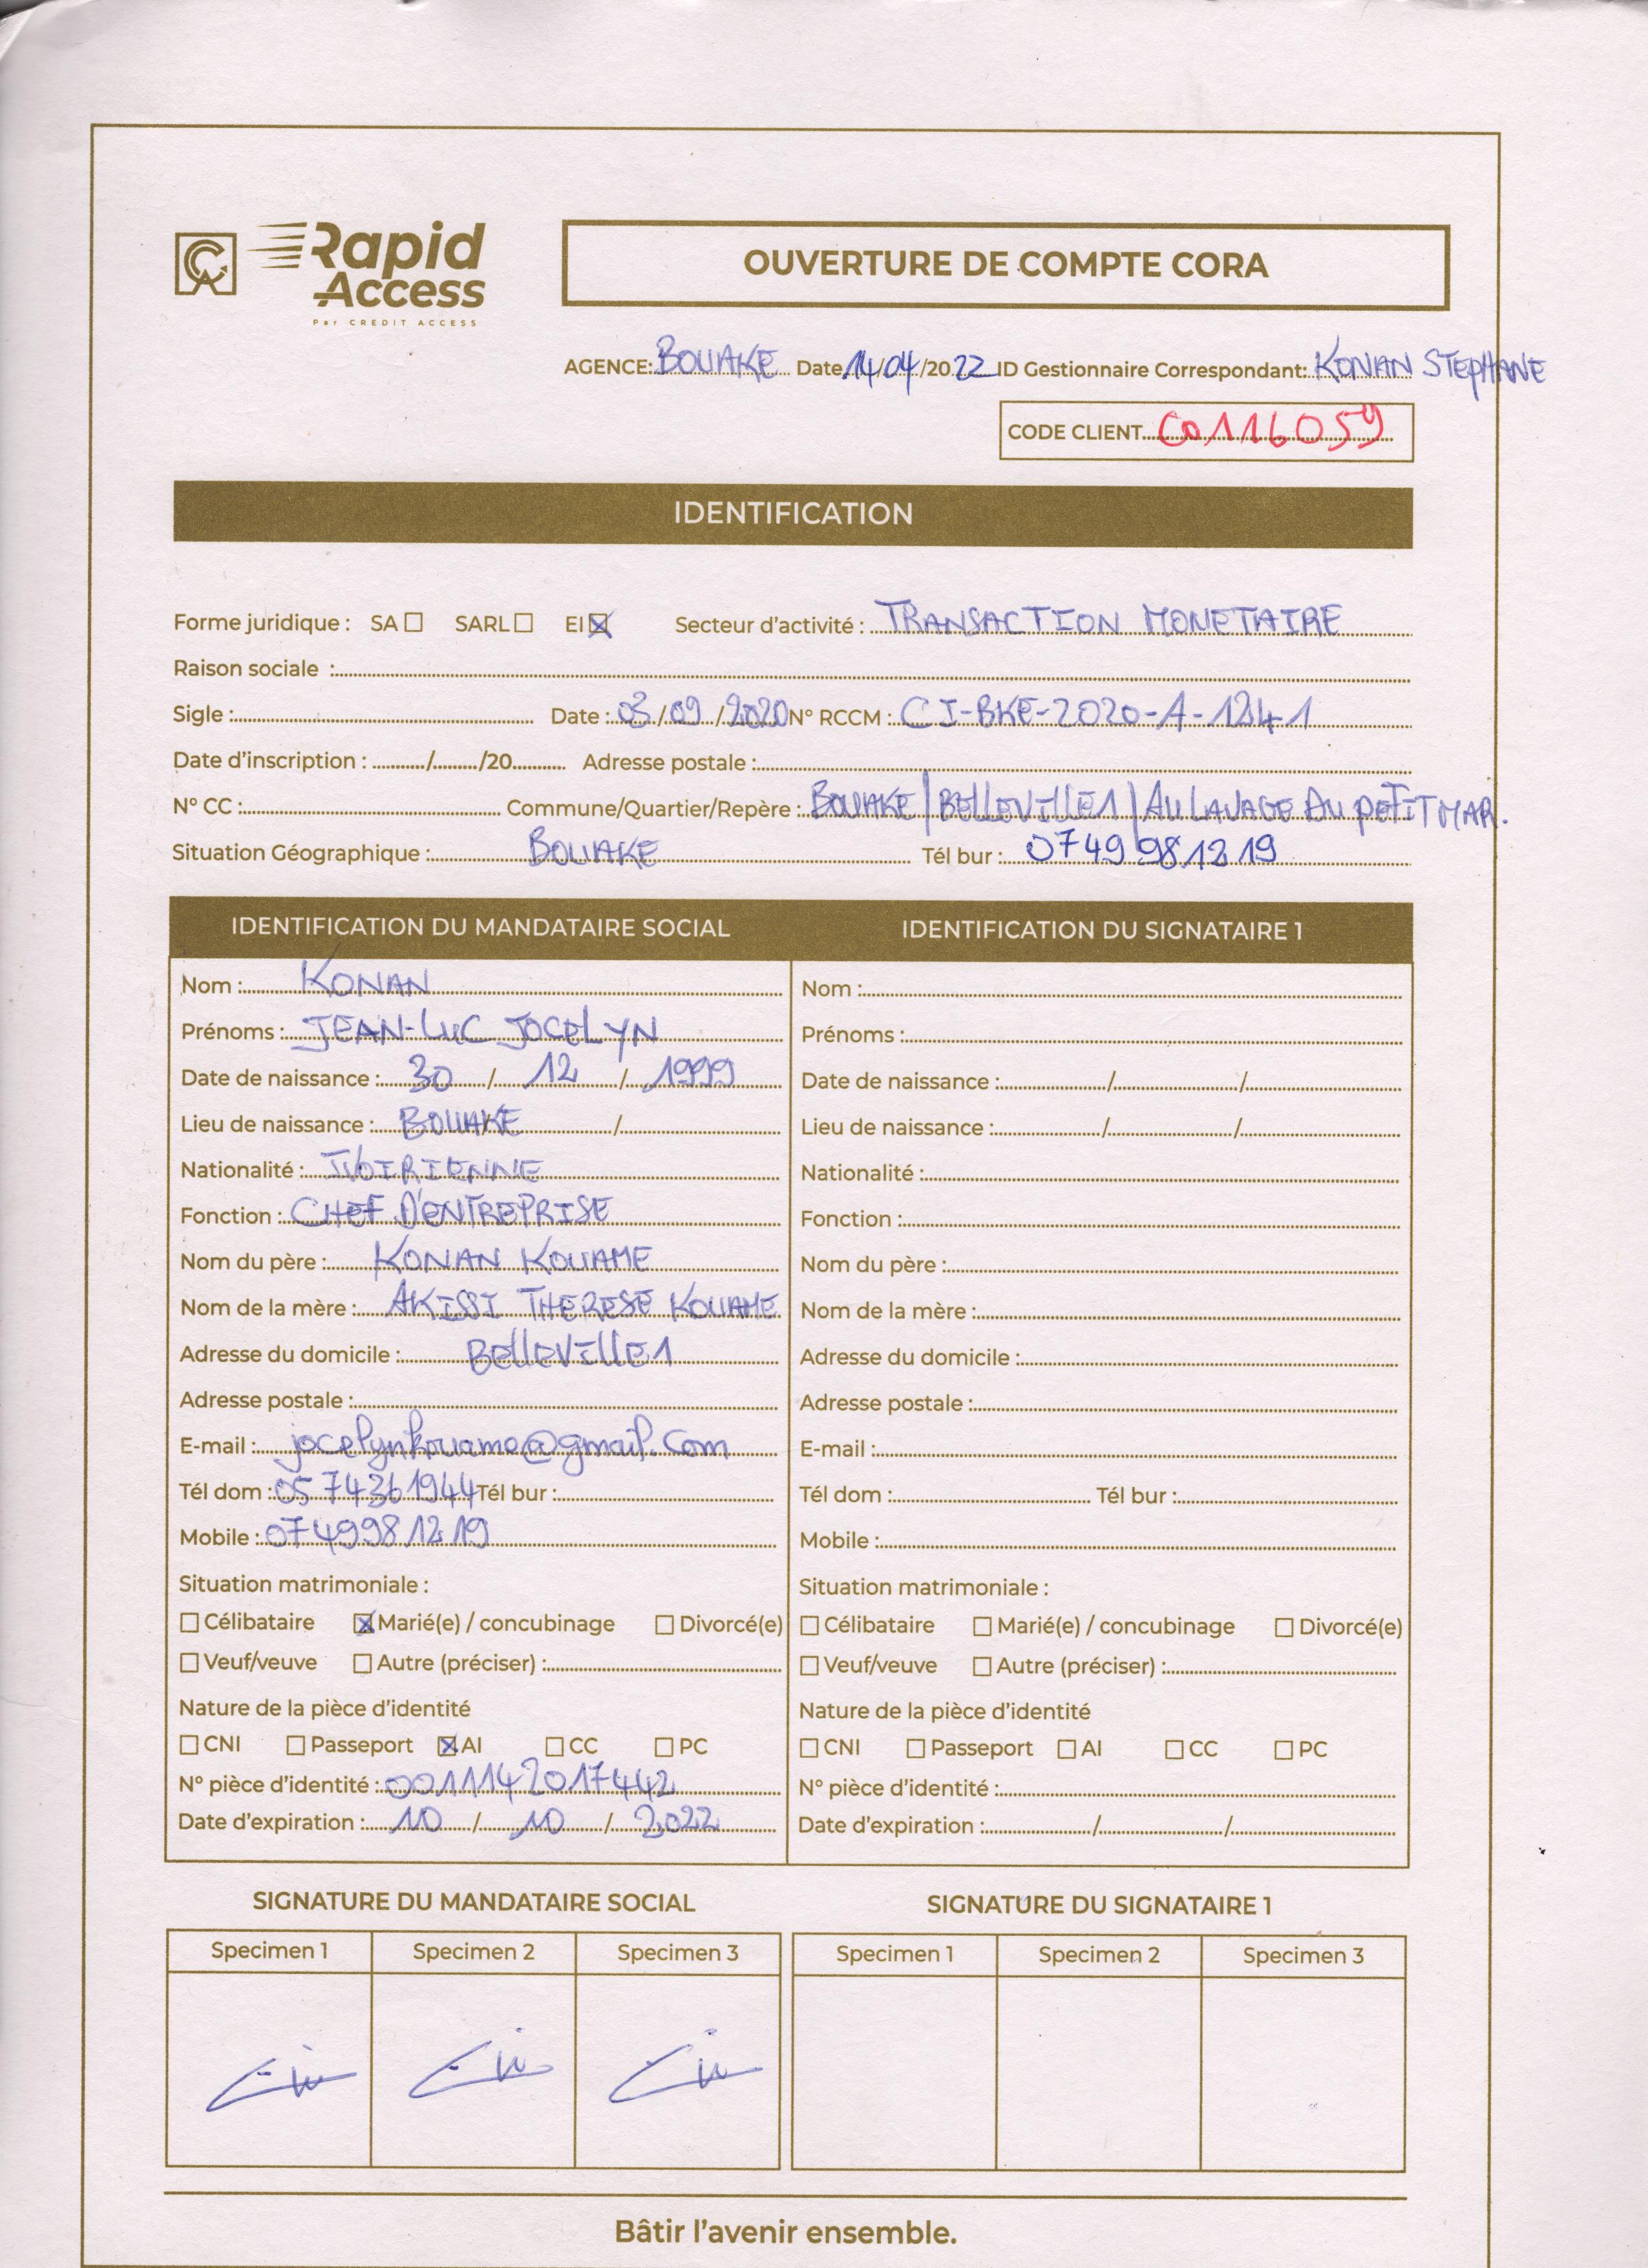 Rapid
Access
Par CREDIT ACCESS
OUVERTURE DE COMPTE CORA
AGENCE: BOUAKE Date 14/04/2022 ID Gestionnaire Correspondant: KONAN STEPHANE
CODE CLIENT C0116059
IDENTIFICATION
Forme juridique : SA ☐ SARL ☐ EI ☒ Secteur d'activité : TRANSACTION MONETAIRE
Raison sociale :
Sigle : Date : 03/09/2020 N° RCCM : CI-BKE-2020-A-1241
Date d'inscription : / /20 Adresse postale :
N° CC : Commune/Quartier/Repère : BOUAKE | BELLEVILLE1 | AU LAVAGE DU PETIT MAR.
Situation Géographique : BOUAKE Tél bur : 0749981219
IDENTIFICATION DU MANDATAIRE SOCIAL
Nom : KONAN
Prénoms : JEAN-LUC JOCELYN
Date de naissance : 30 / 12 / 1999
Lieu de naissance : BOUAKE / /
Nationalité : IVOIRIENNE
Fonction : CHEF D'ENTREPRISE
Nom du père : KONAN KOUAME
Nom de la mère : AKISSI THERESE KOUAME
Adresse du domicile : BELLEVILLE1
Adresse postale :
E-mail : jocelynkouame@gmail.com
Tél dom : 0574361944 Tél bur :
Mobile : 0749981219
Situation matrimoniale :
☐ Célibataire ☒ Marié(e) / concubinage ☐ Divorcé(e)
☐ Veuf/veuve ☐ Autre (préciser) :
Nature de la pièce d'identité
☐ CNI ☐ Passeport ☒ AI ☐ CC ☐ PC
N° pièce d'identité : 00111142017442
Date d'expiration : 10 / 10 / 2022
IDENTIFICATION DU SIGNATAIRE 1
Nom :
Prénoms :
Date de naissance : / /
Lieu de naissance : / /
Nationalité :
Fonction :
Nom du père :
Nom de la mère :
Adresse du domicile :
Adresse postale :
E-mail :
Tél dom : Tél bur :
Mobile :
Situation matrimoniale :
☐ Célibataire ☐ Marié(e) / concubinage ☐ Divorcé(e)
☐ Veuf/veuve ☐ Autre (préciser) :
Nature de la pièce d'identité
☐ CNI ☐ Passeport ☐ AI ☐ CC ☐ PC
N° pièce d'identité :
Date d'expiration : / /
SIGNATURE DU MANDATAIRE SOCIAL
Specimen 1 Specimen 2 Specimen 3
SIGNATURE DU SIGNATAIRE 1
Specimen 1 Specimen 2 Specimen 3
Bâtir l'avenir ensemble.